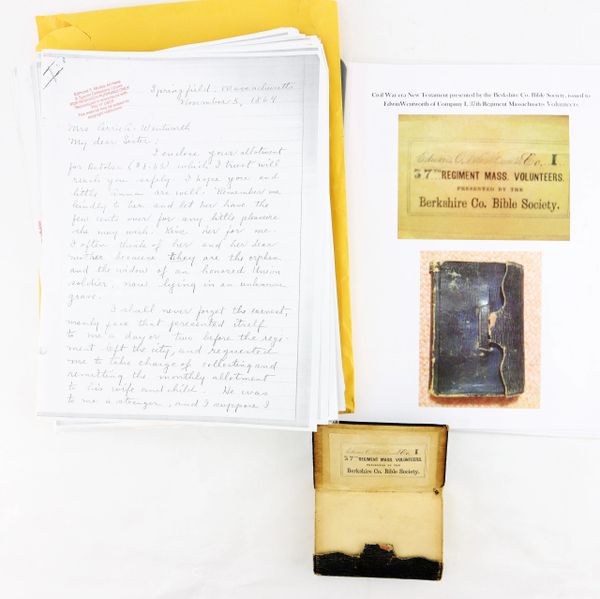 Springfield, Massachusetts
November 5, 1869
Mrs Carrie A. Wentworth
My dear Sister:
I enclose your allotment
for October ($3.65) which I trust will
reach you safely. I hope you and
little Anna are well. Remember me
kindly to her and let her have the
few cents over for any little pleasure
she may wish. Kiss her for me.
I often think of her and her dear
mother because they are the orphan
and the widow of an honored Union
soldier, now lying in an unknown
grave.
I shall never forget the earnest,
manly face that presented itself
to me a day or two before the regi-
ment left the city, and requested
me to take charge of collecting and
remitting the monthly allotment
to his wife and child. He was
to me a stranger, and I suppose I
Civil War era New Testament presented by the Berkshire Co. Bible Society, issued to
Edwin Wentworth of Company I, 37th Regiment Massachusetts Volunteers
Co. I
37TH REGIMENT MASS. VOLUNTEERS.
PRESENTED BY THE
Berkshire Co. Bible Society.
Co. I
37TH REGIMENT MASS. VOLUNTEERS.
PRESENTED BY THE
Berkshire Co. Bible Society.